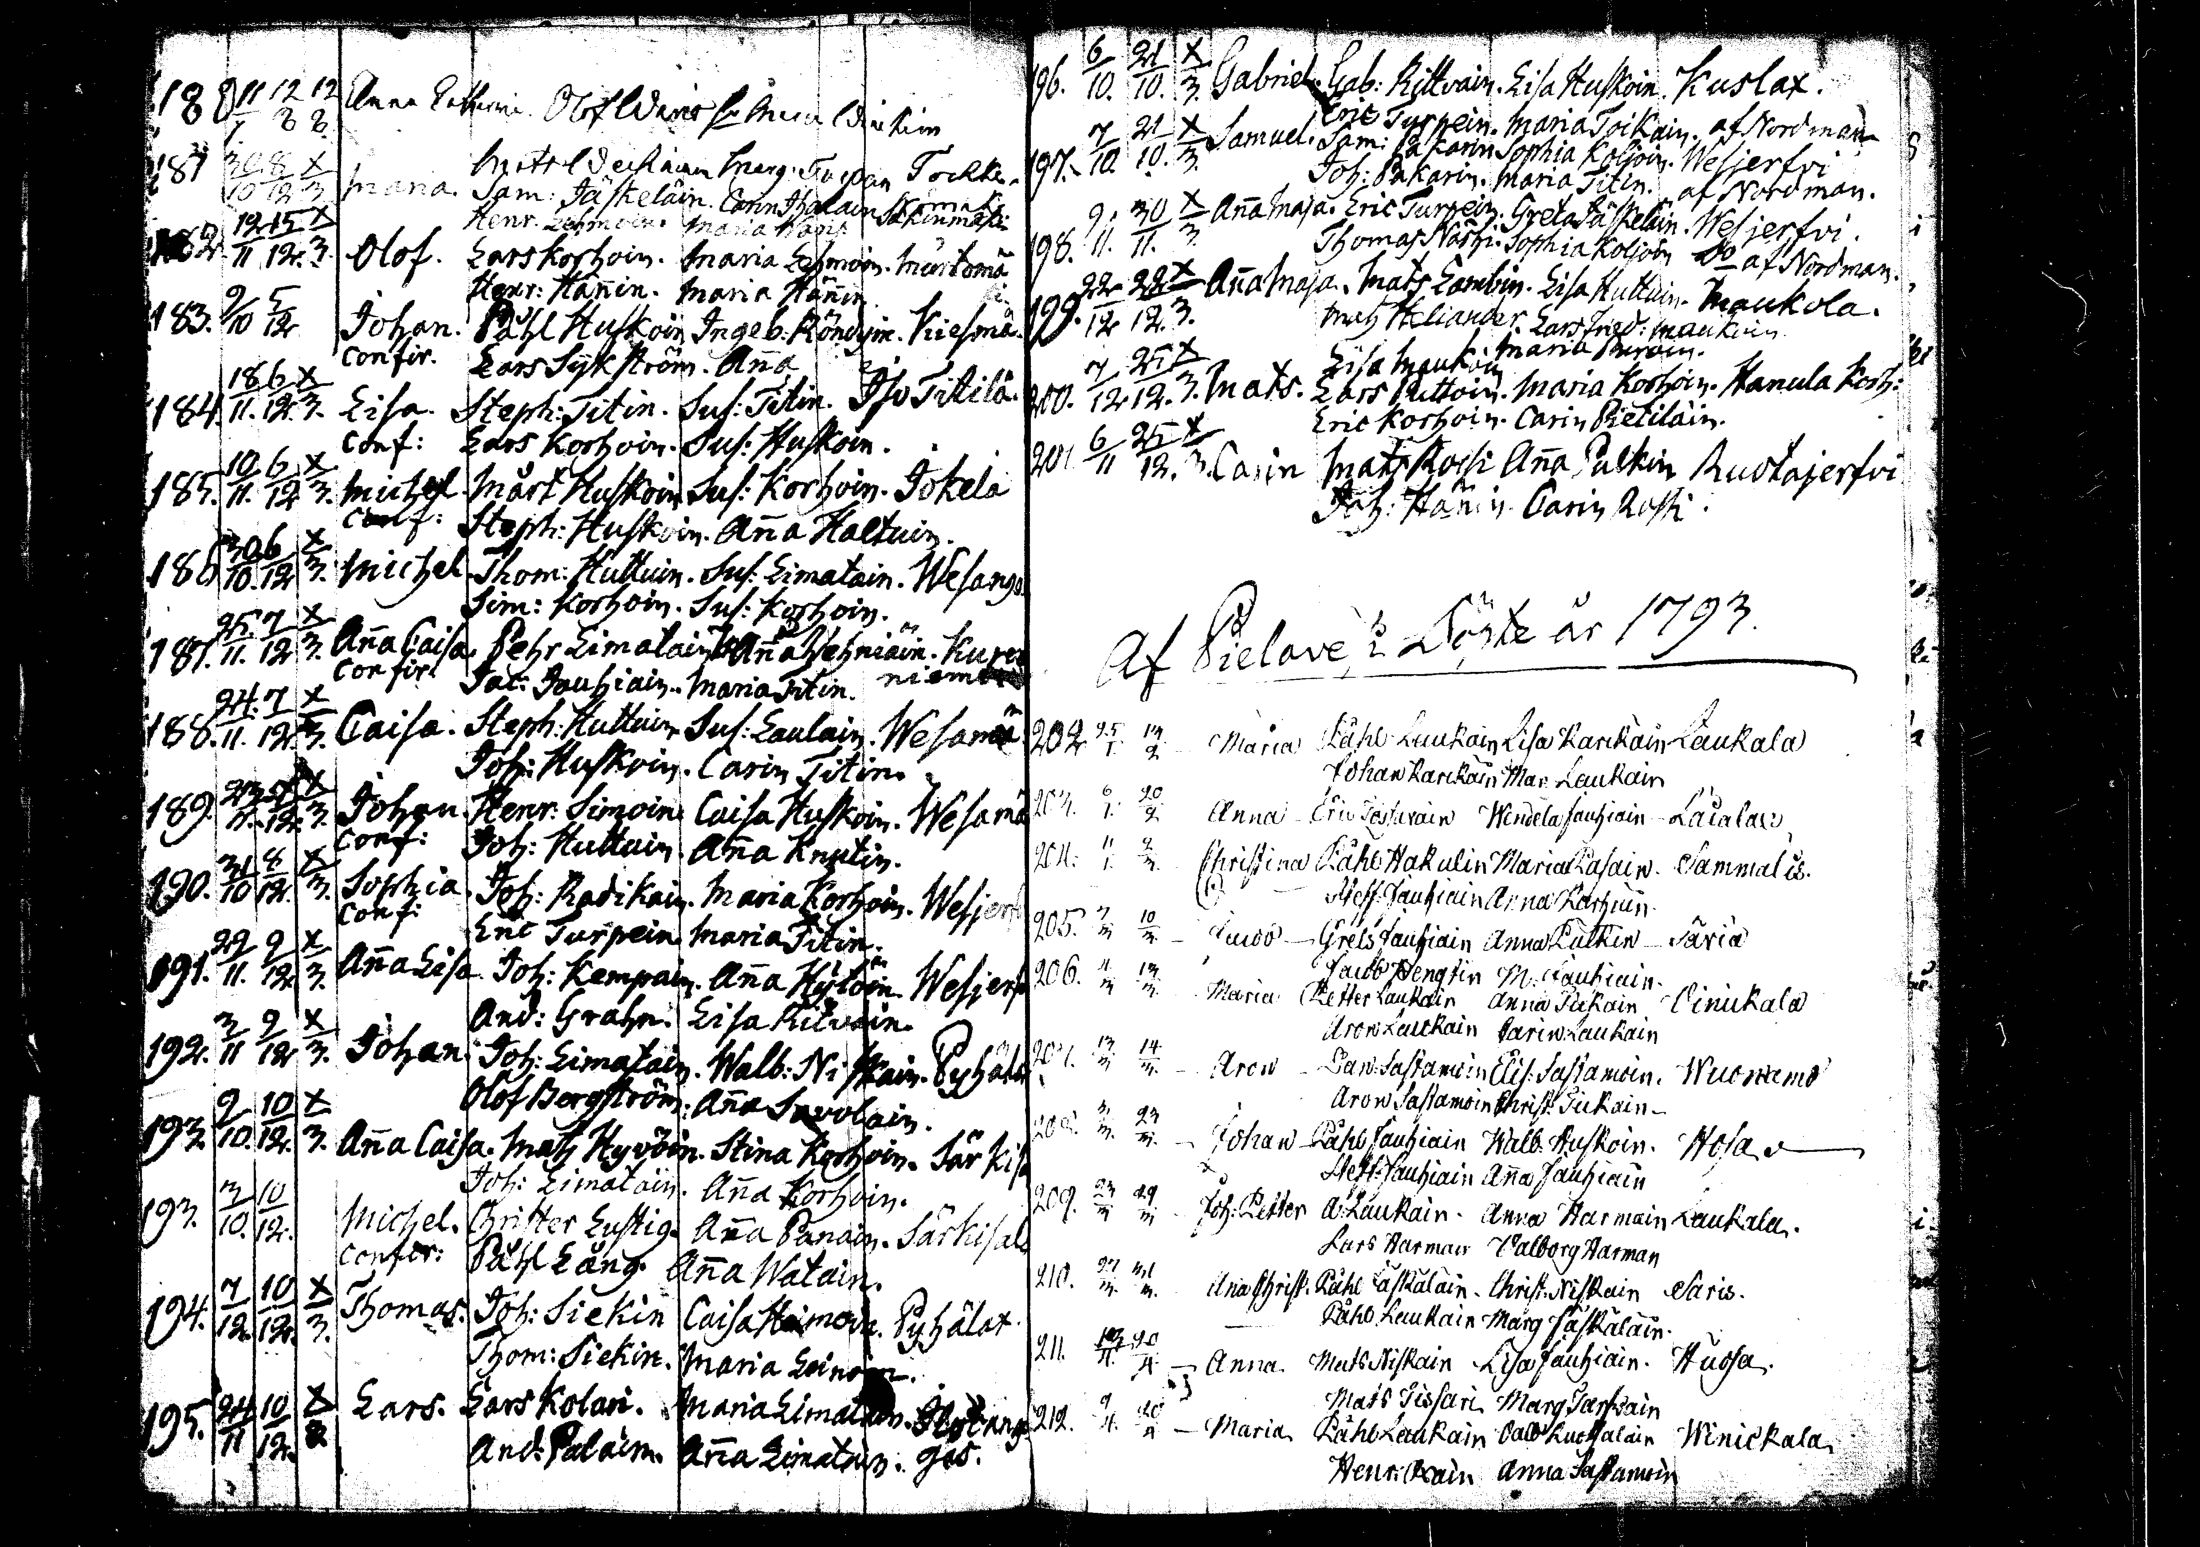 180 11/7 12/8 12/8 Anna Olof
Mats
181 30/10 8/12 X/3 Maria. Sam: Jäskeläin. Carin
Henr: Lehmoin. Maria
182. 12/11 15/12. X/3. Olof. Lars Korhoin. Maria Lehmoin.
Henr: Hänin. Maria Hänin
183. 9/10 5/12 Johan. Påhl Huskoin Ingeb: Röndgin. Kiesmä
Confir. Lars Sykström. Aña
184. 18/11. 6/12. X/3. Lisa. Steph: Titin. Sus: Titin. Iso Titilä.
Conf: Lars Korhoin. Sus: Huskoin.
185. 10/11. 6/12 X/3. Michel. Mårt Huskoin Sus: Korhoin. Jokela
Conf: Steph: Huskoin. Aña Haltuin.
186 30/10. 6/12 X/3. Michel Thom: Huttuin. Sus: Limatain. Wesanga
Sim: Korhoin. Sus: Korhoin.
187. 25/11. 7/12 X/3. Aña Caisa. Pehr Limatain Aña Wehniäin. Kuren
Confir. Jac: Jauhiain. Maria Titin. niemi
188. 24/11. 7/12 X/3. Caisa. Steph: Huttuin Sus: Laulain. Wesamä
Joh: Huskoin. Carin Titin.
189. 23/11. 7/12. X/3. Johan Henr: Simoin Caisa Huskoin. Wesamä
Conf: Joh: Huttuin. Aña Knutin.
190. 31/10 8/12. X/3. Sophia. Joh: Radikain. Maria Korhoin. Wesjerf
Conf: Eric Turpein Maria Titin.
191. 29/11. 9/12. X/3. Aña Lisa Joh: Kempain. Aña Hytöin Wesjerf
And: Grahn. Lisa Ritvain.
192. 3/11 9/12 X/3. Johan. Joh: Limatain. Walb: Niskain. Pyhäla
Olof Bergström. Aña Savolain.
193 9/10. 10/12. X/3. Aña Caisa. Mats Hyvöin. Stina Korhoin. Särkisa
Joh: Limatain. Aña Korhoin.
193. 3/10. 10/12. Michel. Christer Lustig. Aña Panain. Särkisalo
Confir: Påhl Lång. Aña Watain.
194. 7/12. 10/12. X/3. Thomas. Joh: Siekin Caisa Heimoin. Pyhälax
Thom: Siekin. Maria Leinoin.
195. 24/11 10/12. X/3 Lars. Lars Kolari. Maria Limatain.
And: Palain. Aña Limatain. gas.
196. 6/10. 21/10. X/3. Gabriel. Gab: Rittvain. Lisa Huskoin. Kuslax.
Eric Turpein. Maria Toikain. af Nordman
197. 7/10. 21/10. X/3 Samuel. Sam: Pakarin Sophia Koljoin. Wesjerfvi
Joh: Pakarin. Maria Titin. af Nordman.
198. 9/11. 30/11. X/3 Aña Maja. Eric Turpein. Greta Jäskeläin. Wesjerfvi.
Thomas Närhi. Sophia Koljoin Do af Nordman.
199. 22/12 28/12. X/3. Aña Maja. Mats Lambin. Lisa Huttuin. Maukola.
Mats Heliander. Lars Fred: Maukoin
Lisa Maukoin Maria
200. 7/12 25/12. X/3. Mats. Lars Ruttoin. Maria Korhoin. Hanula Korh:
Eric Korhoin. Carin Pietiläin.
201. 6/11 25/12. X/3. Carin Mats Rossi Aña Pulkin Ruotajerfvi
Joh: Hänin Carin Rossi.
Af Pielave Döpte år 1793.
202 25/1 13/2 Maria Påhl Laukain Lisa Karckain Laukala
Johan Karckain Mar. Laukain
203. 6/1. 20/2 Anna Eric Wendela Jauhiain
204. 11/1. 2/3 Christina Påhl Hakulin Maria Pasain. Sammalis.
Steff: Jauhiain Anna Karhuin.
205. 7/3 10/3 Jacob Grels Jauhiain Anna Pulkin Säviä
Jacob Hengtin M: Jauhiain.
206. 11/3 13/3 Maria Petter Laukain Anna Tickain Vinickala
Aron Lauckain Carin Laukain
207. 13/3 14/3 Aron Dan: Sastamoin Elis: Sastamoin. Wuonamo
Aron Sastamoin Christ: Tickain
208. 3/3. 23/3. Johan Påhl Jauhiain Walb: Huskoin. Hosa
Steff: Jauhiain Aña Jauhiain
209. 23/3 29/3 Joh: Petter A: Laukain. Anna Harmain Laukala.
Lars Harmain Valborg Harman
210. 27/3. 31/3. Ana Christ: Påhl Jäskäläin. Christ: Niskain Säris.
Påhl Laukain Marg Jäskäläin.
211. 13/4. 20/4. Anna. Mats Niskain Lisa Jauhiain. Huosa.
Mats Tissari Marg
212. 9/4. 20/4 Maria Påhl Laukain Walb Winickala
Anna Sastamoin